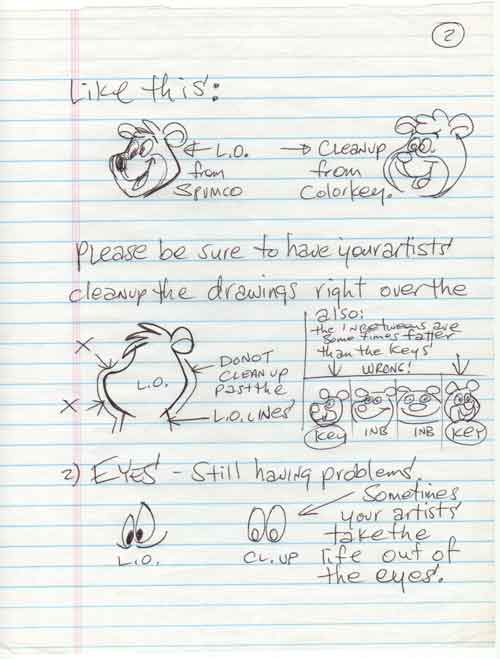 2
Like this:
← L.O.
from
SPUMCO
→ CLEANUP
from
Colorkey.
Please be sure to have your artists
cleanup the drawings right over the
L.O.
X
X
DO NOT
CLEAN UP
past the
L.O. LINES
also:
the INBETWEENS are
sometimes fatter
than the keys
WRONG!
Key
INB
INB
KEY
2) EYES - Still having problems.
L.O.
CL. UP
Sometimes
your artists
take the
life out of
the eyes.